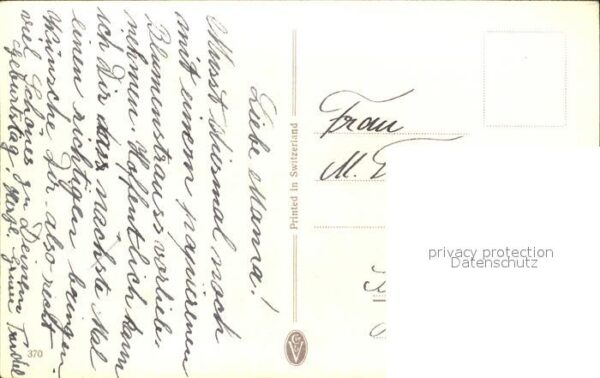 Liebe Mama!
Musst diesmal noch
mit einem papierenen
Blumenstrauss vorlieb-
nehmen. Hoffentlich kann
ich Dir das nächste Mal
einen richtigen bringen.
Wünsche Dir also recht
viel Schönes zu Deinem
Geburtstag. Herzl. Grüsse Trudel
Printed in Switzerland
370
Frau
M.
privacy protection
Datenschutz